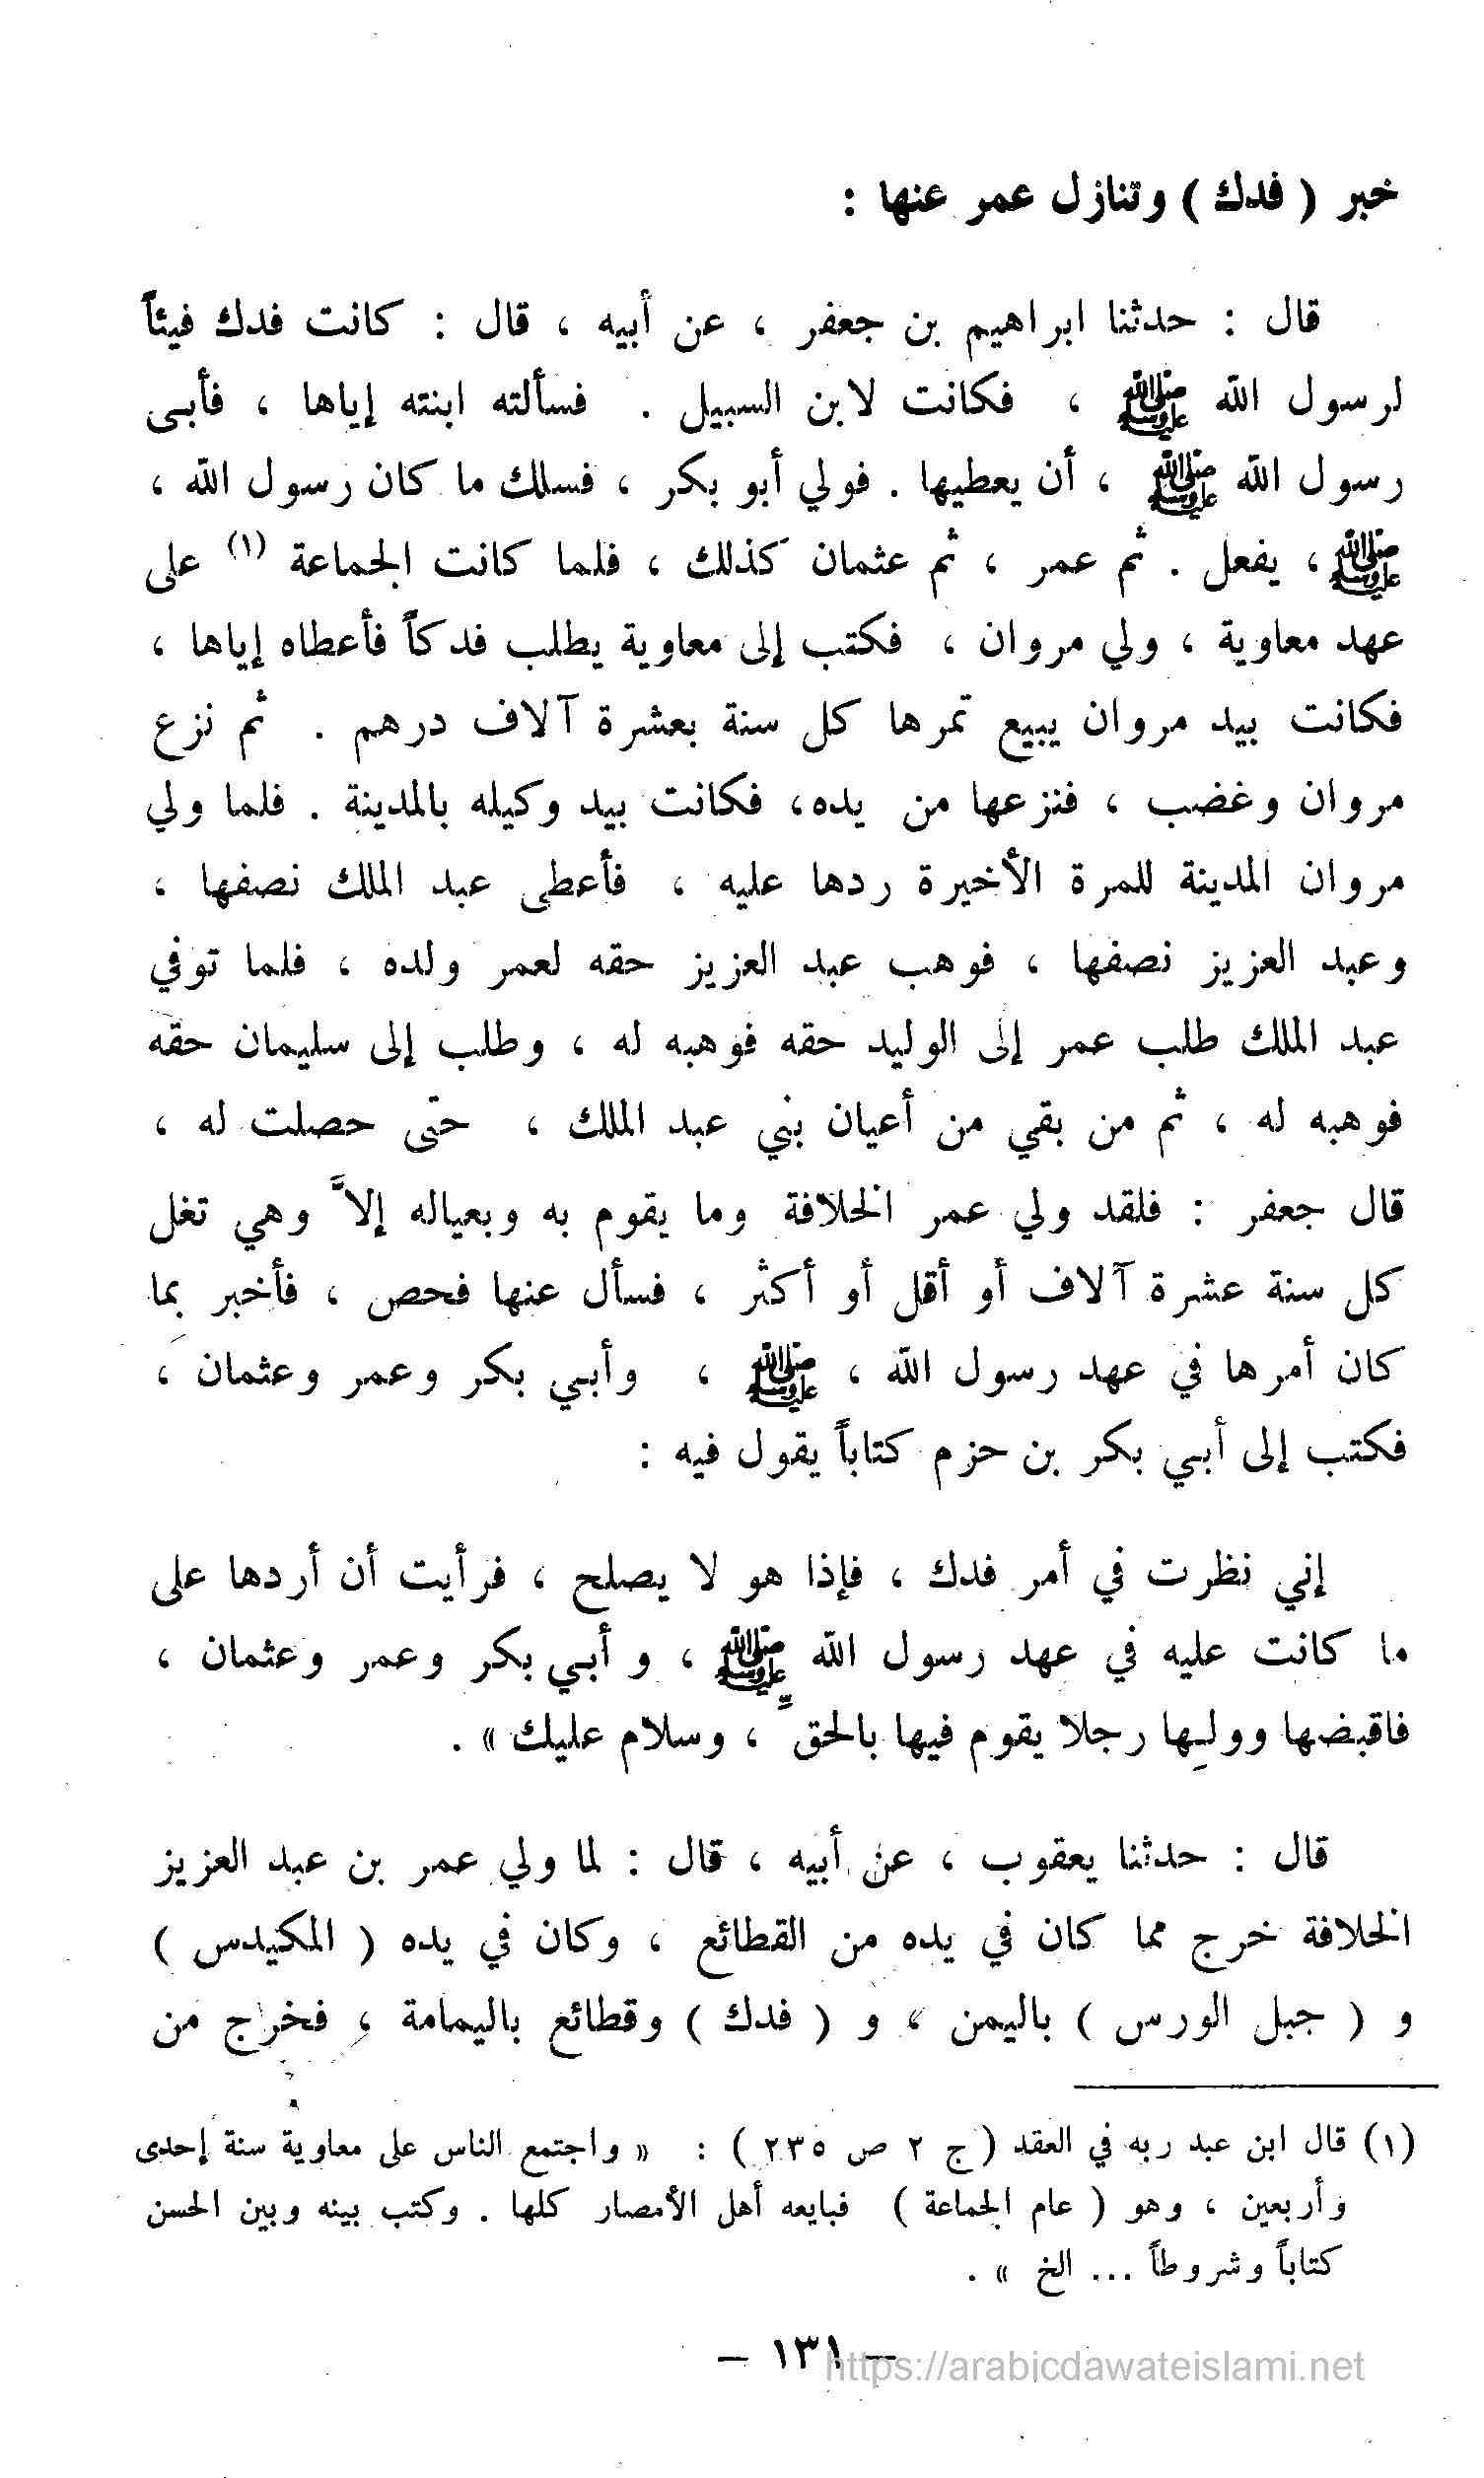 خبر ( فدك ) وتنازل عمر عنها :
قال : حدثنا ابراهيم بن جعفر ، عن أبيه ، قال : كانت فدك فيئاً
لرسول الله ﷺ ، فكانت لابن السبيل . فسألته ابنته إياها ، فأبى
رسول الله ﷺ ، أن يعطيها . فولي أبو بكر ، فسلك ما كان رسول الله ،
ﷺ ، يفعل . ثم عمر ، ثم عثمان كذلك ، فلما كانت الجماعة (١) على
عهد معاوية ، ولي مروان ، فكتب إلى معاوية يطلب فدكاً فأعطاه إياها ،
فكانت بيد مروان يبيع تمرها كل سنة بعشرة آلاف درهم . ثم نزع
مروان وغضب ، فنزعها من يده، فكانت بيد وكيله بالمدينة . فلما ولي
مروان المدينة للمرة الأخيرة ردها عليه ، فأعطى عبد الملك نصفها ،
وعبد العزيز نصفها ، فوهب عبد العزيز حقه لعمر ولده ، فلما توفي
عبد الملك طلب عمر إلى الوليد حقه فوهبه له ، وطلب إلى سليمان حقه
فوهبه له ، ثم من بقي من أعيان بني عبد الملك ، حتى حصلت له ،
قال جعفر : فلقد ولي عمر الخلافة وما يقوم به وبعياله إلاَّ وهي تغل
كل سنة عشرة آلاف أو أقل أو أكثر ، فسأل عنها فحص ، فأخبر بما
كان أمرها في عهد رسول الله ، ﷺ ، وأبي بكر وعمر وعثمان ،
فكتب إلى أبي بكر بن حزم كتاباً يقول فيه :
إني نظرت في أمر فدك ، فإذا هو لا يصلح ، فرأيت أن أردها على
ما كانت عليه في عهد رسول الله ﷺ ، و أبي بكر وعمر وعثمان ،
فاقبضها وولها رجلا يقوم فيها بالحق ، وسلام عليك » .
قال : حدثنا يعقوب ، عن أبيه ، قال : لما ولي عمر بن عبد العزيز
الخلافة خرج مما كان في يده من القطائع ، وكان في يده ( المكيدس )
و ( جبل الورس ) باليمن ، و ( فدك ) وقطائع باليمامة ، فخرج من
(١) قال ابن عبد ربه في العقد ( ج ٢ ص ٢٣٥ ) : « واجتمع الناس على معاوية سنة إحدى
وأربعين ، وهو ( عام الجماعة ) فبايعه أهل الأمصار كلها . وكتب بينه وبين الحسن
كتاباً وشروطاً ... الخ » .
– ١٣١ –
https://arabicdawateislami.net